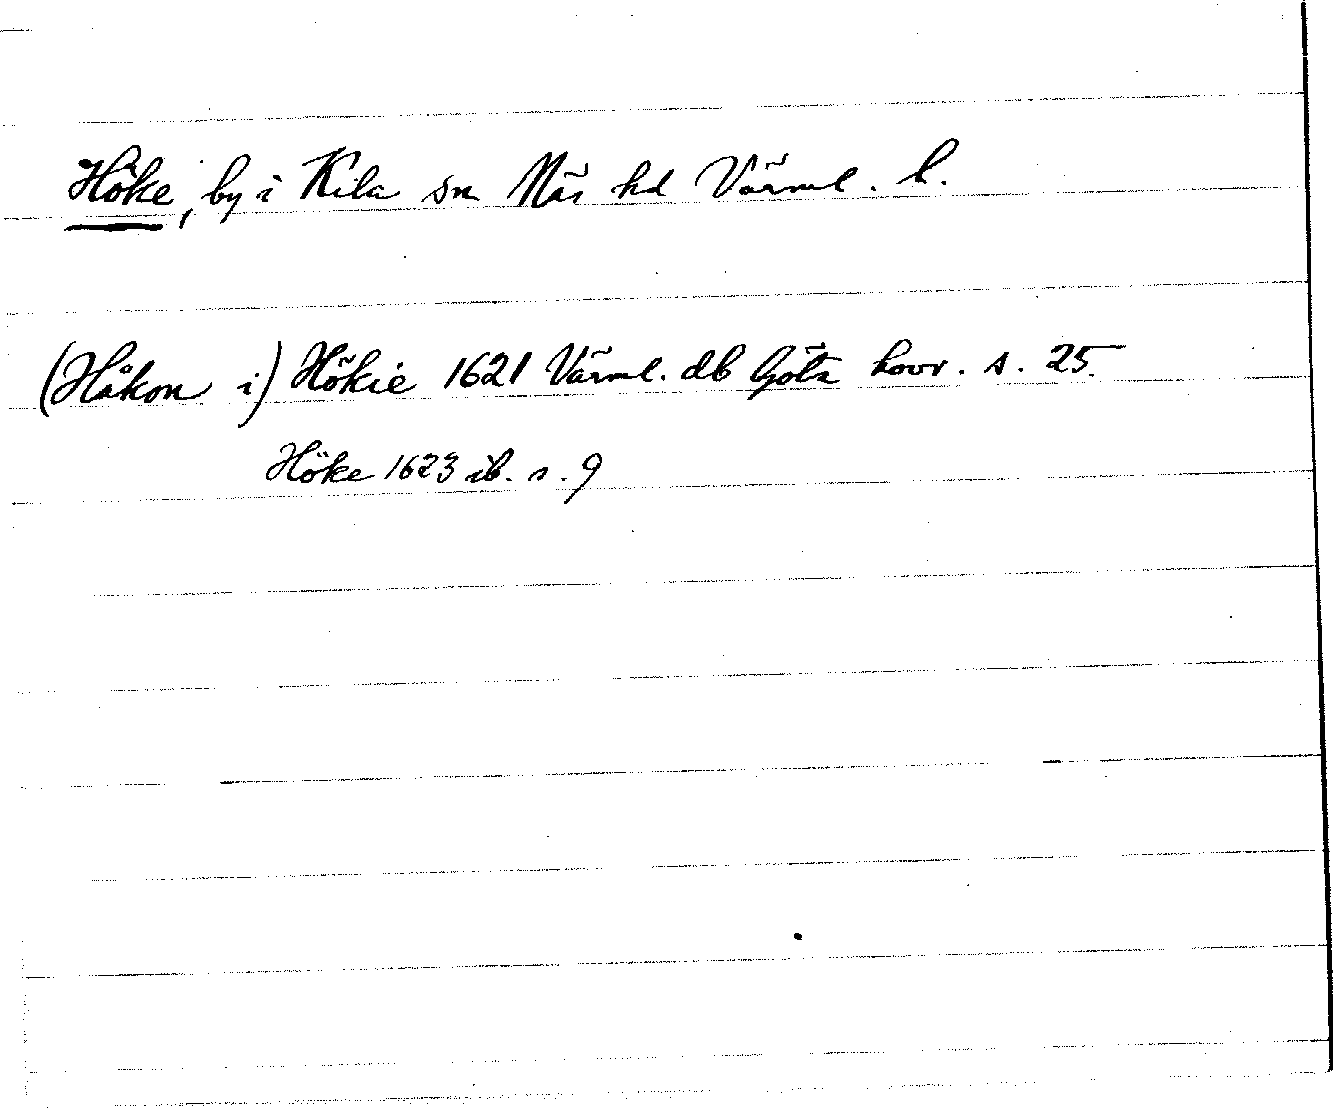 Höke, by i Kila sn Näs hd Värml. l.
(Håkon i) Hökie 1621 Värml. db Göta hovr. s. 25.
Höke 1623 ib. s. 9